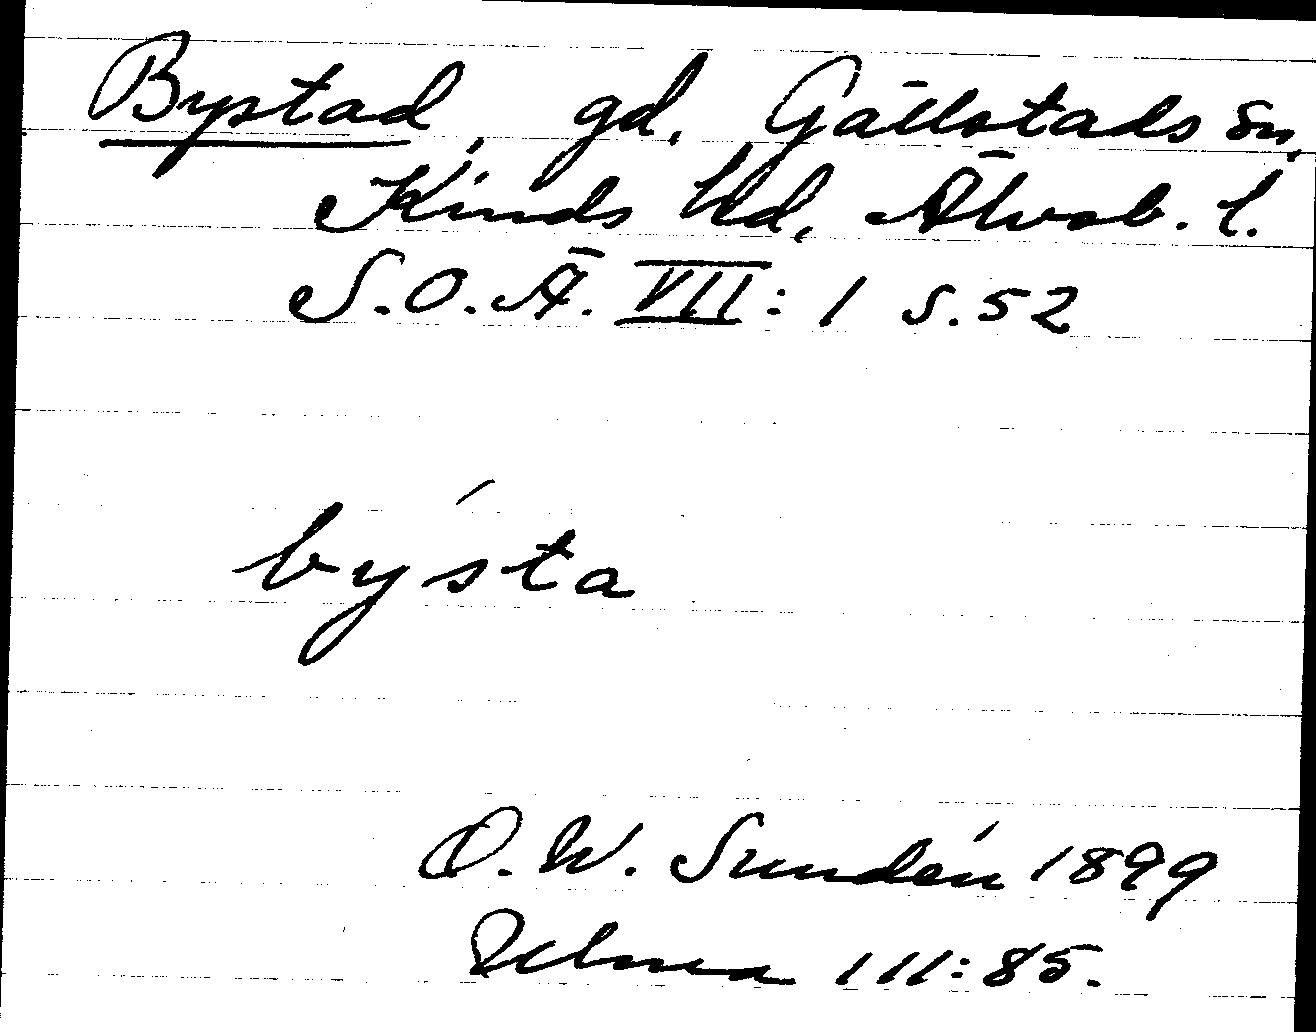 Bystad, gd, Gällstads sn,
Kinds hd, Älvsb. l.
S.O.Ä. VII: 1 s. 52
by´sta
O. W. Sundén 1899
111:85.